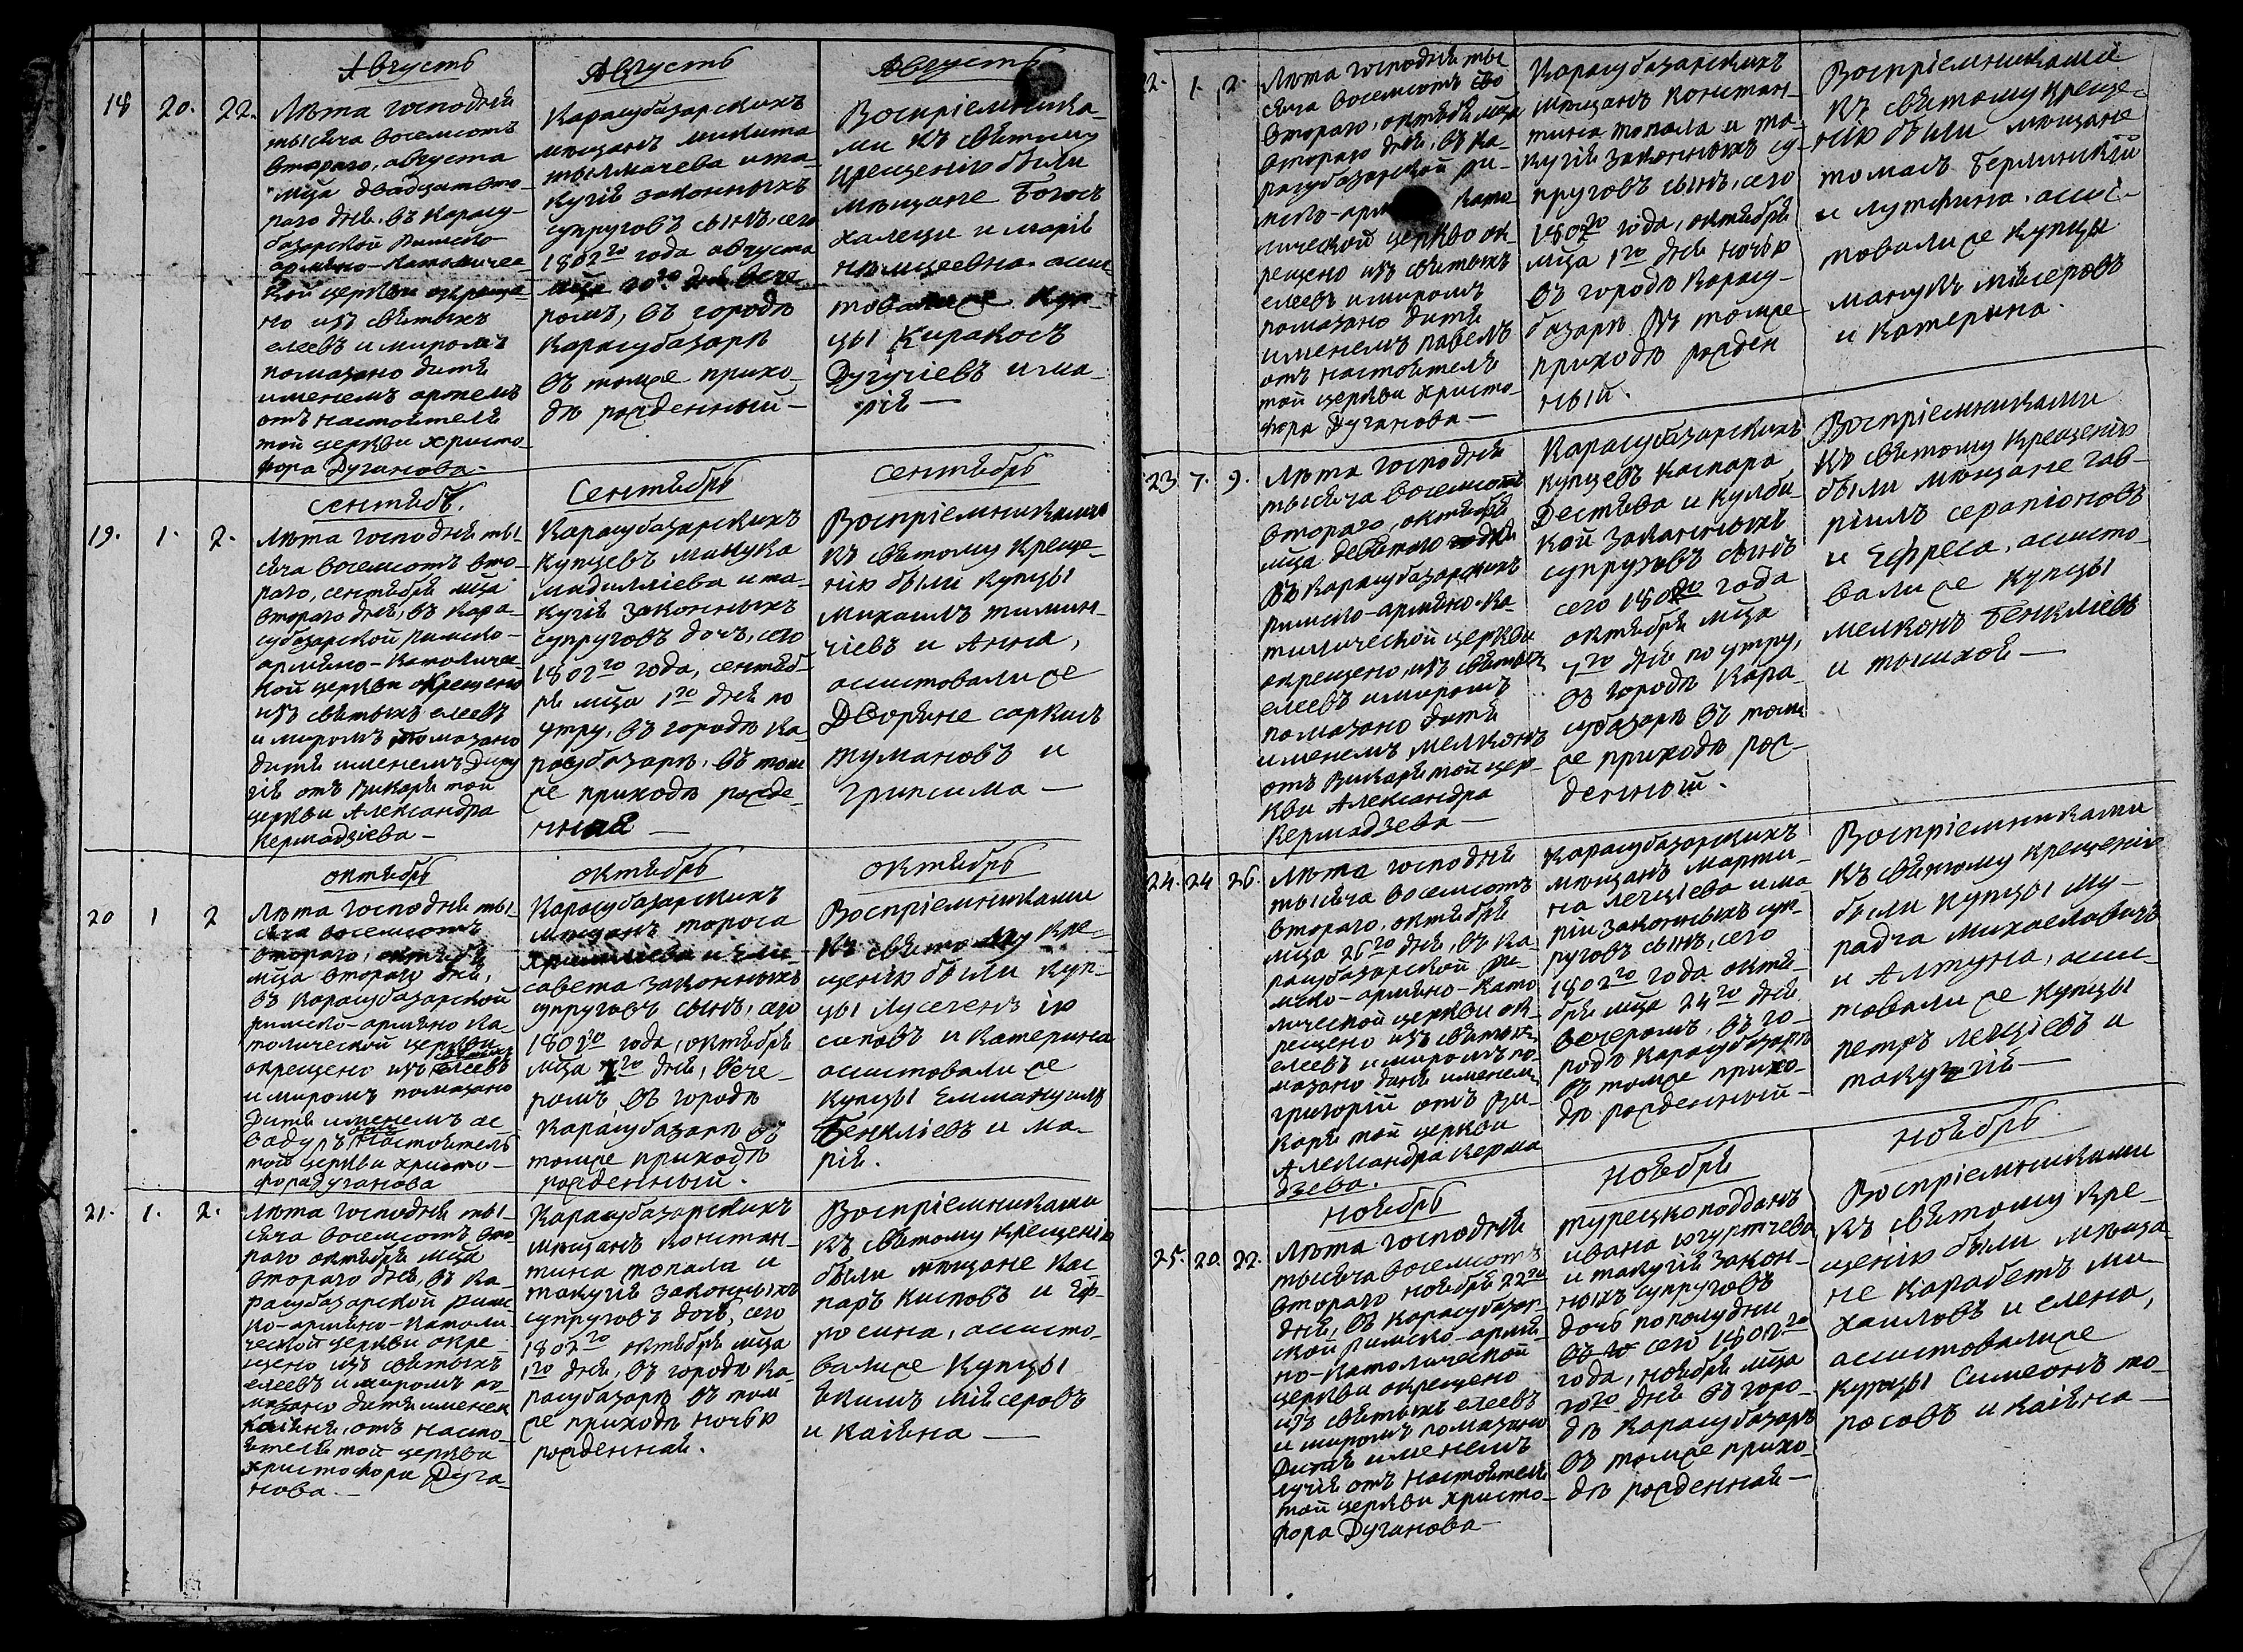 Августъ
18 20. 22.
Лѣта господня
тысяча восемсотъ
втораго, августа
мца двадцать вто-
раго дня, въ Карасу-
базарской Римско-
армяно-католичес-
кой церкви окреще-
но изъ святыхъ
елеевъ и миромъ
помазано дитя
именемъ артемъ
отъ настоятеля
той церкви христо-
фора Дуганова.
Августъ
Карасубазарскихъ
мещанъ микита
тылмачева и та-
кугiя законныхъ
супруговъ сынъ, сего
1802го года августа
мца 20го дня вече-
ромъ, въ городѣ
Карасубазарѣ
въ томже прихо-
дѣ рожденный —
Августъ
Воспрiемника-
ми къ святому
крещенiю были
мещане Богосъ
халеци и марiя
асис-
товалиже куп-
цы Киракосъ
Дугучiевъ и ма-
рiя —
Сентябъ.
19. 1. 2.
Лѣта господня ты-
сяча восемсотъ вто-
раго, сентября мца
втораго дня, въ Кара-
субазарской римско-
армяно-католичес-
кой церкви окрещено
изъ святыхъ елеевъ
и миромъ помазано
дитя именемъ Диру
гiя отъ викарiя той
церкви Александра
Кермадзiева —
Сентябрь
Карасубазарскихъ
купцевъ манука
мадиллiева и та-
кугiя законныхъ
супруговъ дочь, сего
1802го года, сентяб-
ря мца 1го дня по
утру, въ городѣ Ка-
расубазарѣ, въ том
же приходѣ рожде-
нная —
Сентябрь
Воспрiемниками
къ святому креще-
нiю были купцы
михаилъ тимин-
чiевъ и Анна,
асистовалиже
Дворяне саркисъ
тумановъ и
грипсима —
октябрь
20 1 2
Лѣта господня ты-
сяча восемсотъ
втораго, октября
мца втораго дня,
въ Карасубазарской
римско-армяно ка-
толической церкви
окрещено изъ святыхъ елеевъ
и миромъ помазано
дитя именемъ ас-
вадуръ отъ настоятеля
той церкви христо-
фора Дуганова
октябрь
Карасубазарскихъ
мещанъ тороса
и Ели-
савета законныхъ
супруговъ сынъ, сего
1802го года, октября
мца 1го дня, вече-
ромъ въ городѣ
Карасубазарѣ въ
томже приходѣ
рожденный.
октябрь
Воспрiемниками
къ святому кре-
щенiю были куп-
цы лусегенъ iо
сиповъ и катерина
асистовалиже
купцы Еммануилъ
Бенклiевъ и ма-
рiя.
21. 1. 2.
Лѣта господня ты-
сяча восемсотъ вто-
раго октября мца
втораго дня, въ Ка-
расубазарской римс
ко-армяно-катали
ческой церкви окре-
щено изъ святыхъ
елеевъ и миромъ по-
мазано дитя именем
каiяня, отъ насто-
ятеля той церкви
христофора Дуга-
нова. —
Карасубазарскихъ
мещанъ констан-
тина топала и
такугiя законныхъ
супруговъ дочь, сего
1802го октября мца
1го дня, въ городѣ Ка-
расубазарѣ въ том
же приходѣ ночью
рожденная.
Воспрiемниками
къ святому крещенiю
были мещане Кас
паръ киповъ и Еф-
росина, асисто-
валиже купцы
Екимъ мiясеровъ
и каiяна —
22. 1. 2.
Лѣта господня ты
сяча восемсотъ
втораго, октября мца
втораго дня, въ Ка-
расубазарской ри-
мско-арм като
лической церкво ок-
рещено изъ святыхъ
елеевъ и миромъ
помазано дитя
именемъ павелъ
отъ настоятеля
той церкви христо-
фора Дуганова —
Карасубазарскихъ
мещанъ констан-
тина топала и та-
кугiя законныхъ су-
пруговъ сынъ, сего
1802го года, октября
мца 1го дня ночью
въ городѣ Карасу-
базарѣ въ томже
приходѣ рожден
ный.
Воспрiемниками
къ святому креще-
нiю были мещане
томасъ Берлинскiй
и лутфина, асис-
товалиже купцы
манукъ мiясеровъ
и катерина.
23 7. 9.
Лѣта господня
тысяча восемсотъ
втораго, октября
мца девятаго дня
въ Карасубазарскихъ
римско-армяно-ка-
толической церкви
окрещено, изъ святыхъ
елеевъ и миромъ
помазано дитя
именемъ мелконъ
отъ викарiя той цер-
кви Александра
Кермадзева —
Карасубазарскихъ
купцевъ каспара
Дестява и кулби-
кой законныхъ
супруговъ сынъ
сего 1802го года
октября мца
7го дня по утру,
въ городѣ Кара-
субазарѣ въ том
же приходѣ рож-
денный.
Воспрiемниками
къ святому крещенiю
были мещане гав-
рiилъ серапiоновъ
и Ефреса, асисто-
валиже купцы
мелконъ Бенклiевъ
и —
24. 24 26.
Лѣта господня
тысяча восемсотъ
втораго, октября
мца 26го дня, въ ка-
расубазарской ри-
мско-армяно-като
лической церкви ок-
рещено изъ святыхъ
елеевъ и миромъ по-
мазано дитя именем
григорiй отъ ви-
карiя той церкви
Александра керма
дзева.
Карасубазарскихъ
мещанъ марти-
на лецiева и ма
рiи законныхъ суп-
руговъ сынъ, сего
1802го года октя-
бря мца 24го дня
вечеромъ, въ го-
родѣ Карасубазарѣ
въ томже прихо-
дѣ рожденный —
Воспрiемниками
къ святому крещенiю
были купцы му-
радча михаеловичъ
и Алтуна, асис-
товалиже купцы
петръ лецiевъ и
такугiя —
Ноябрь
25. 20. 22.
Лѣта господня
тысяча восемсотъ
втораго ноября 22го
дня, въ карасубазар-
ской римско-армя-
но-католической
церкви окрещено
изъ святыхъ елеевъ
и миромъ помазано
дитя именемъ
лучiя отъ настоятеля
той церкви христо-
фора Дуганова —
Ноября
турецкоподданъ
ивана югуртчева
и такугiя закон-
ныхъ супруговъ
дочь по полудни
сего 1802го
года, ноября мца
20го дня въ горо-
дѣ Карасубазарѣ
въ томже прихо-
дѣ рожденная —
Ноябрь
Воспрiемниками
къ святому кре-
щенiю были меща-
не карабетъ ми-
хаиловъ и елена,
асистовалиже
купцы Симеонъ то-
росовъ и каiяна —